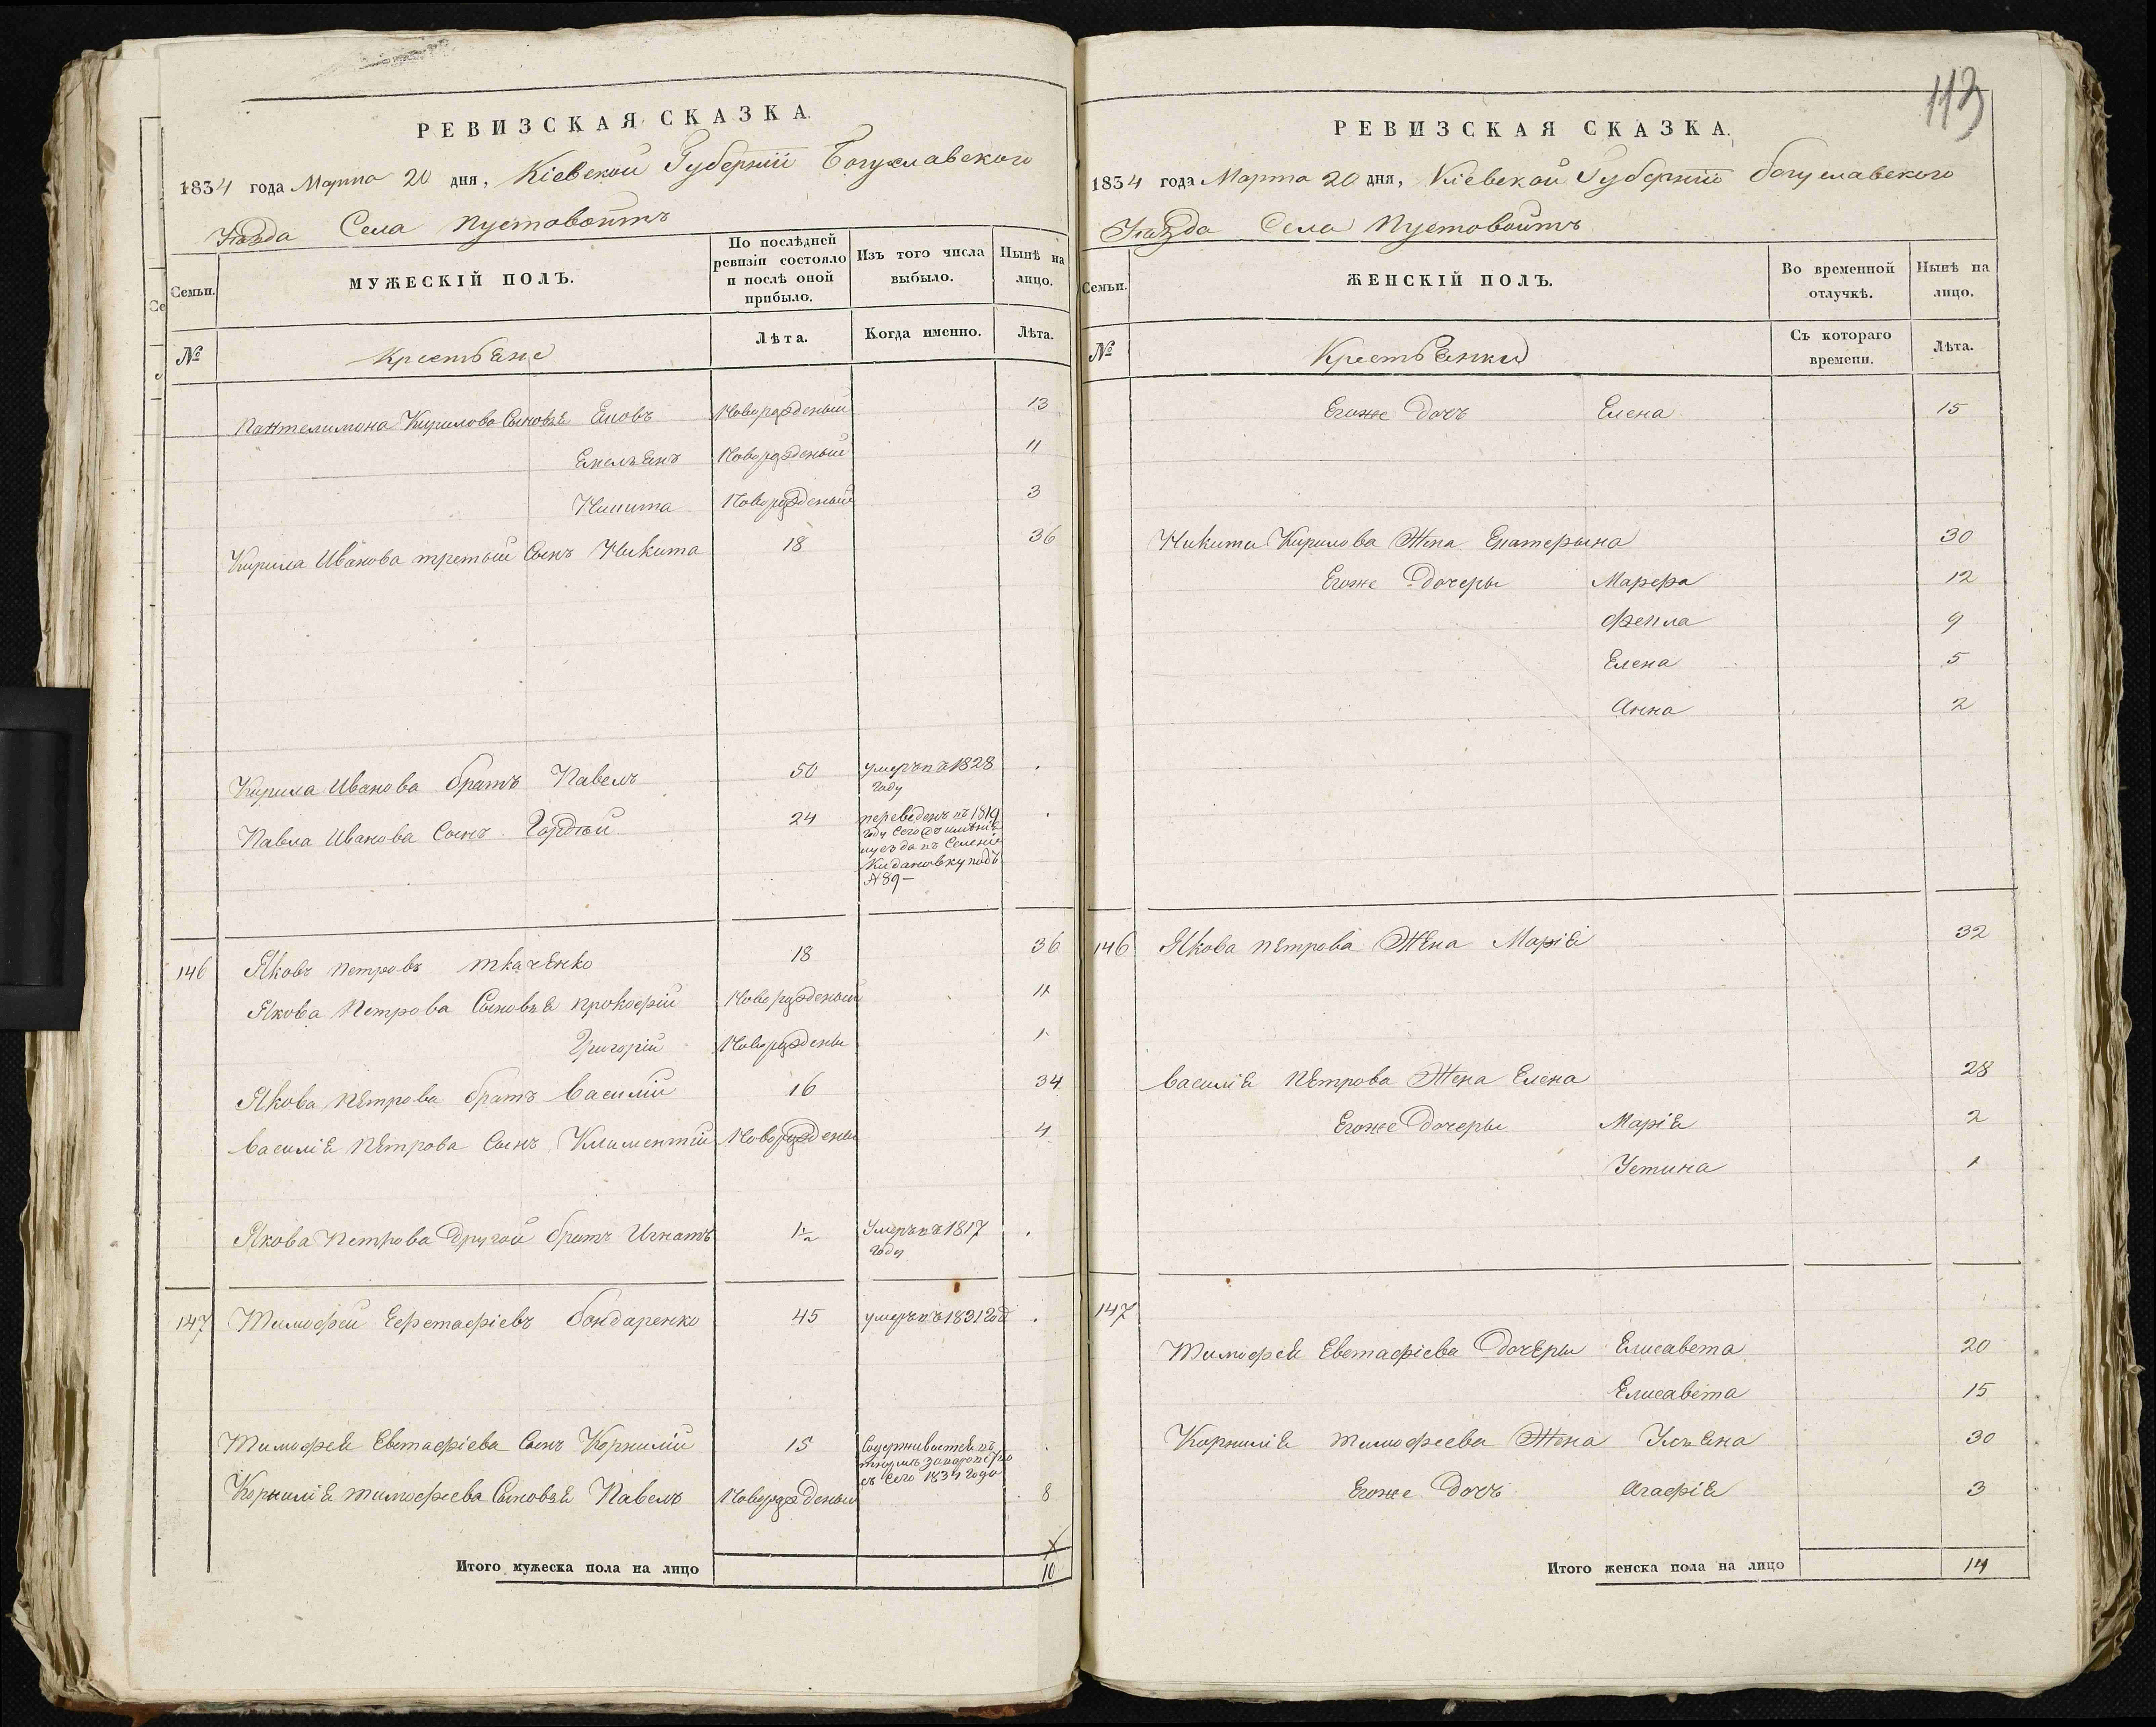 РЕВИЗСКАЯ СКАЗКА
1834 года Марта 20 дня, Кіевской Губерніи Богуславского
Уѣзда Села Пустовойтъ
Семьи. МУЖЕСКІЙ ПОЛЪ. По послѣдней ревизіи состояло и послѣ оной прибыло. Изъ того числа выбыло. Нынѣ на лицо.
№ Крестьяне Лѣта. Когда именно. Лѣта.
Пантелимона Кирилова Сыновья Яковъ Новорожденый 13
Емельянъ Новорожденый 11
Никита Новорожденый 3
Кирила Иванова третый Сынъ Никита 18 36
Кирила Иванова братъ Павелъ 50 умеръ въ 1828
году
Павла Иванова Сынъ Гордѣй 24 переведенъ въ 1819
году сего
уезда въ Селеніе
Кидановку подъ
№ 89 —
146 Яковъ Петровъ Ткаченко 18 36
Якова Петрова Сыновья Прокофій Новорожденый 11
Григорій Новорождены 1
Якова Петрова братъ Василій 16 34
Василія Петрова Сынъ Климентій Новорождены 4
Якова Петрова другой братъ Игнатъ 1½ Умеръ въ 1817
году
147 Тимофей Ефстафіевъ Бондаренко 45 умеръ въ 1831 год
Тимофея Евстафіева Сынъ Корнилій 15 Содерживается въ
съ сего 1834 года
Корнилія Тимофеева Сыновья Павелъ Новорожденый 8
Итого мужеска пола на лицо 10
113
РЕВИЗСКАЯ СКАЗКА.
1834 года Марта 20 дня, Кіевской Губерніи Богуславского
Уѣзда Села Пустовойтъ
Семьи. ЖЕНСКІЙ ПОЛЪ. Во временной отлучкѣ. Нынѣ на лицо.
№ Крестьянки Съ котораго времени. Лѣта.
Егоже дочъ Елена 15
Никиты Кирилова Жена Екатерына 30
Егоже дочеры Марфа 12
Фекла 9
Елена 5
Анна 2
146 Якова Петрова Жена Марія 32
Василія Петрова Жена Елена 28
Егоже Дочеры Марія 2
Устина 1
147
Тимофея Евстафіева дочеры Елисавета 20
Елисавета 15
Корнилія Тимофеева Жена Ульяна 30
Егоже дочъ Агафія 3
Итого женска пола на лицо 14